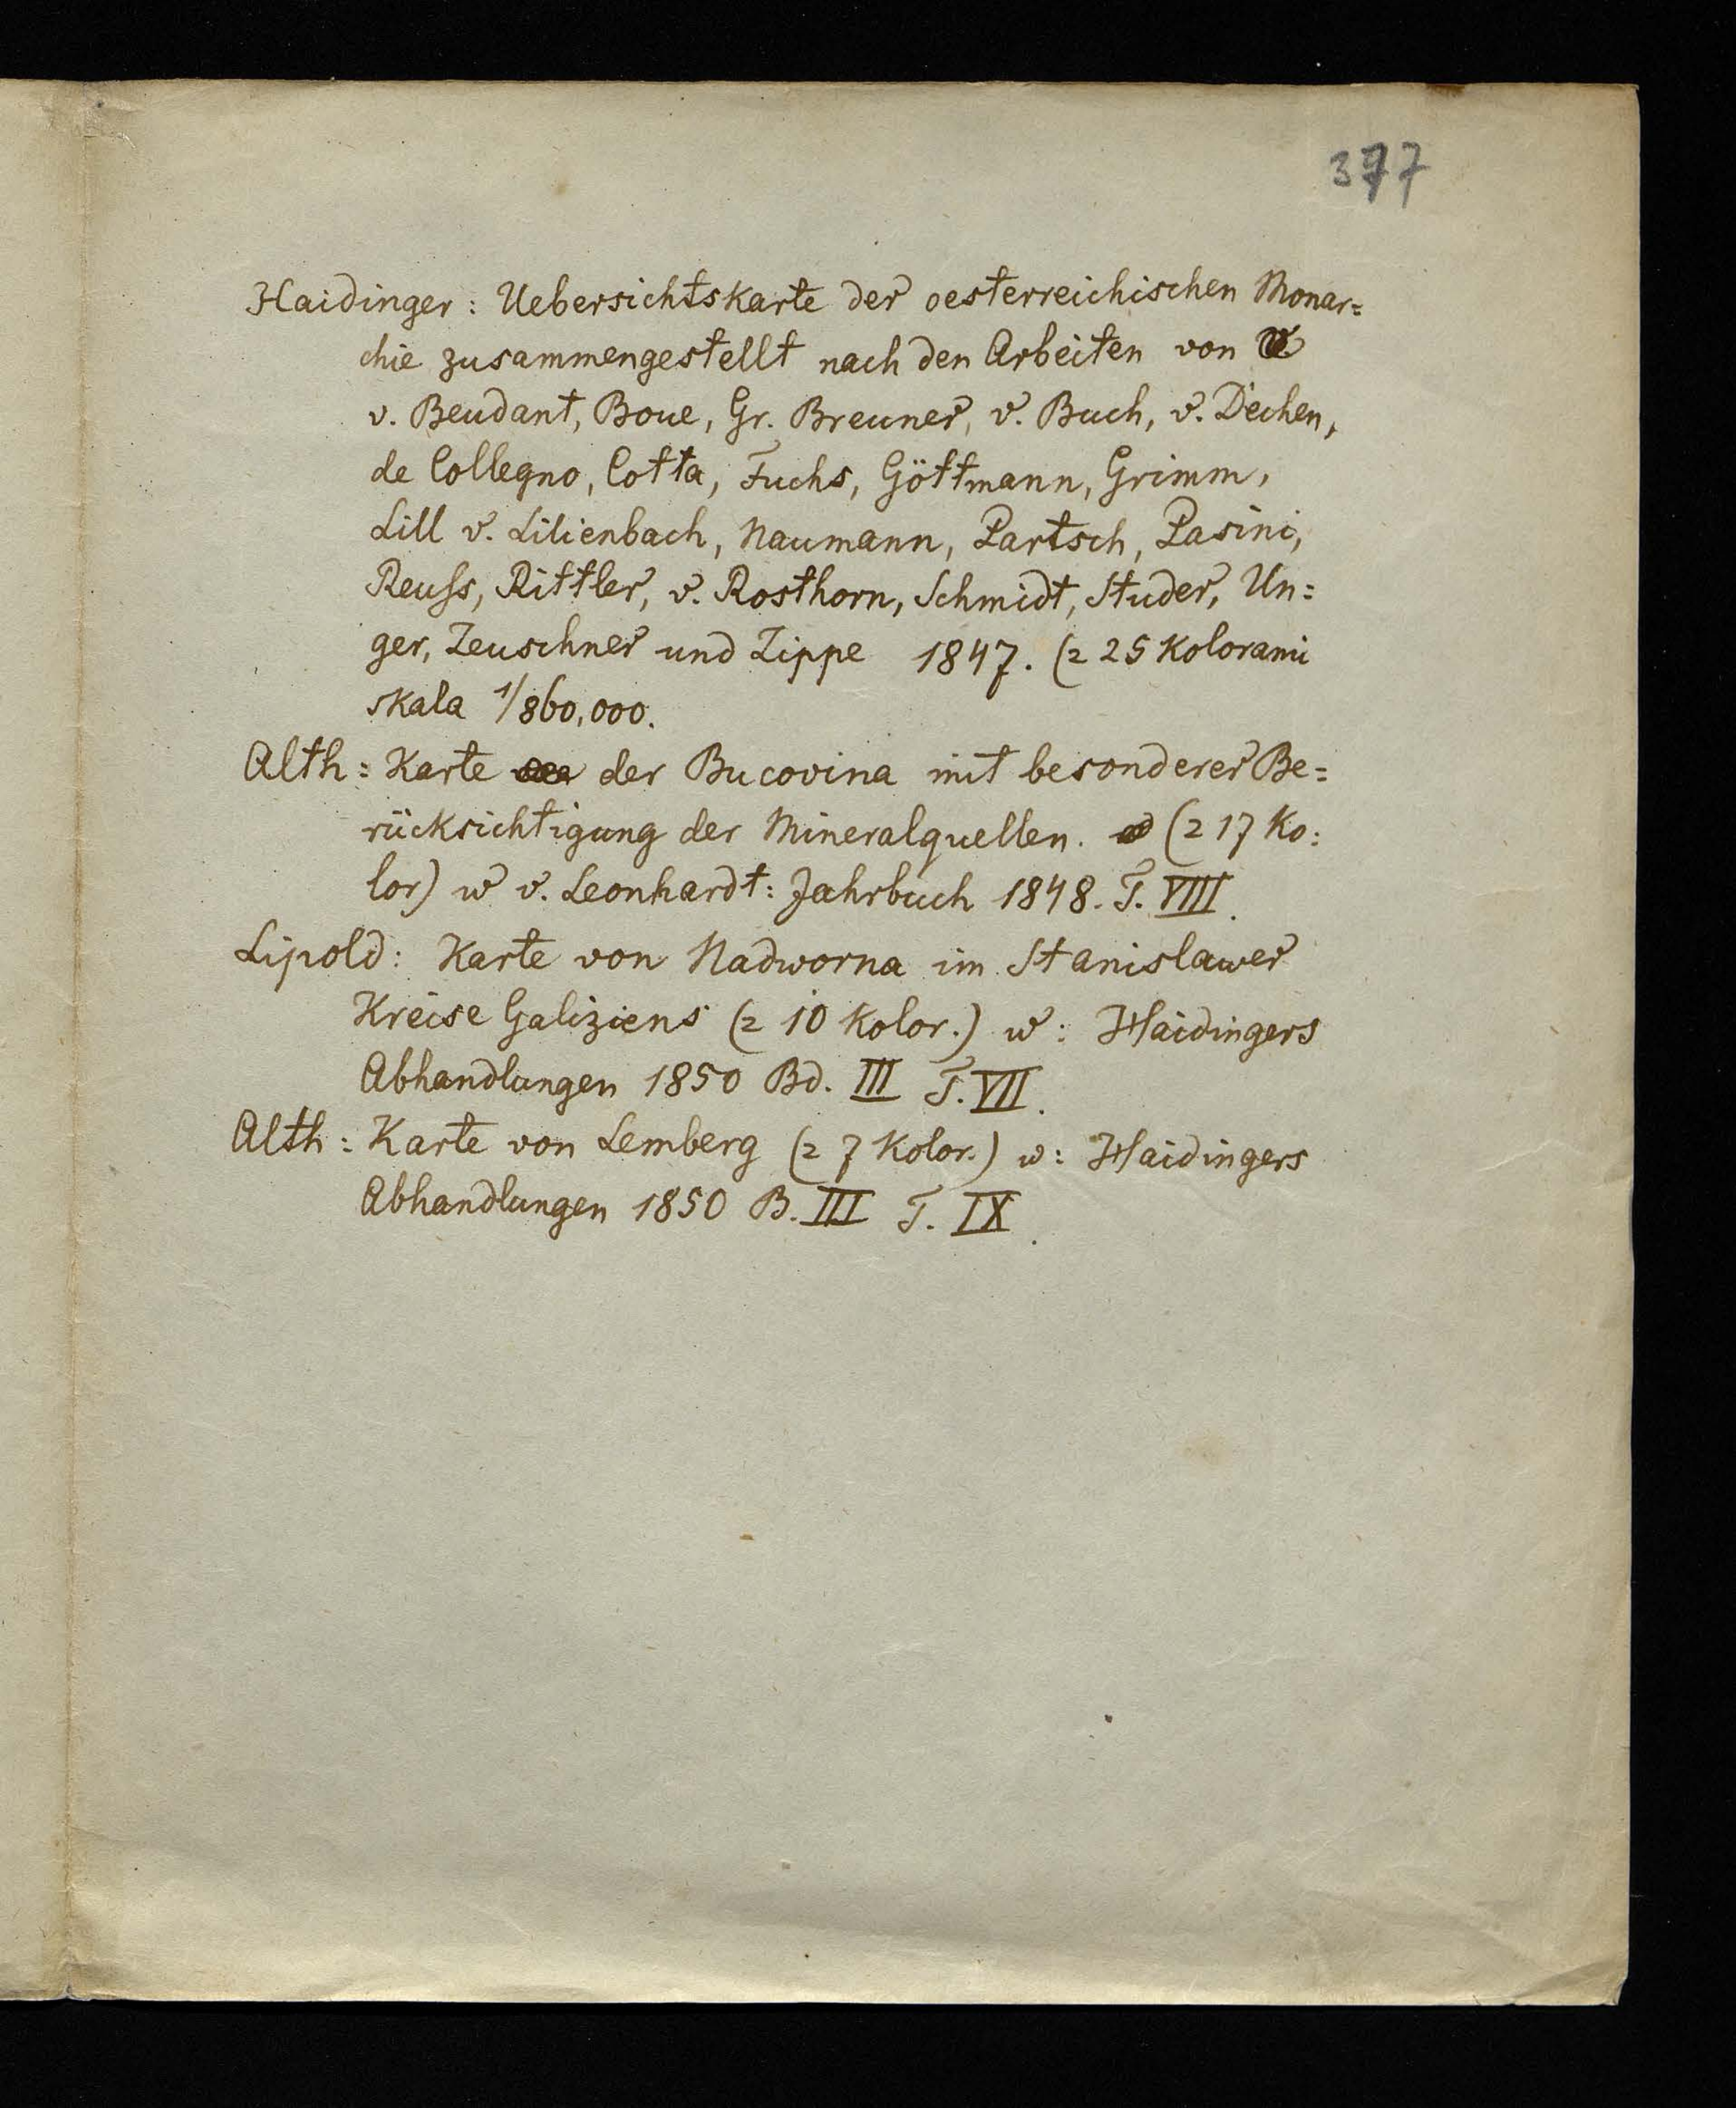 377
Haidinger: Uebersichtskarte der oesterreichischen Monar=
chie zusammengestellt nach den Arbeiten von
v. Beudant, Boue, Gr. Breuner, v. Buch, v. Dechen,
de Collegno, Cotta, Fuchs, Göttmann, Grimm,
Lill v. Lilienbach, Naumann, Partsch, Pasini,
Reuſs, Rittler, v. Rosthorn, Schmidt, Studer, Un=
ger, Zeuschner und Zippe 1847. (z 25 Kolorami
skala 1/860,000.
Alth: Karte der Bucovina mit besonderer Be=
rücksichtigung der Mineralquellen. (z 17 Ko:
lor) w v. Leonhardt: Jahrbuch 1848. T. VIII.
Lipold: Karte von Nadworna im Stanislawer
Kreise Galiziens (z 10 Kolor.) w: Haidingers
Abhandlungen 1850 Bd. III T. VII.
Alth: Karte von Lemberg (z 7 Kolor.) w: Haidingers
Abhandlungen 1850 B. III T. IX.